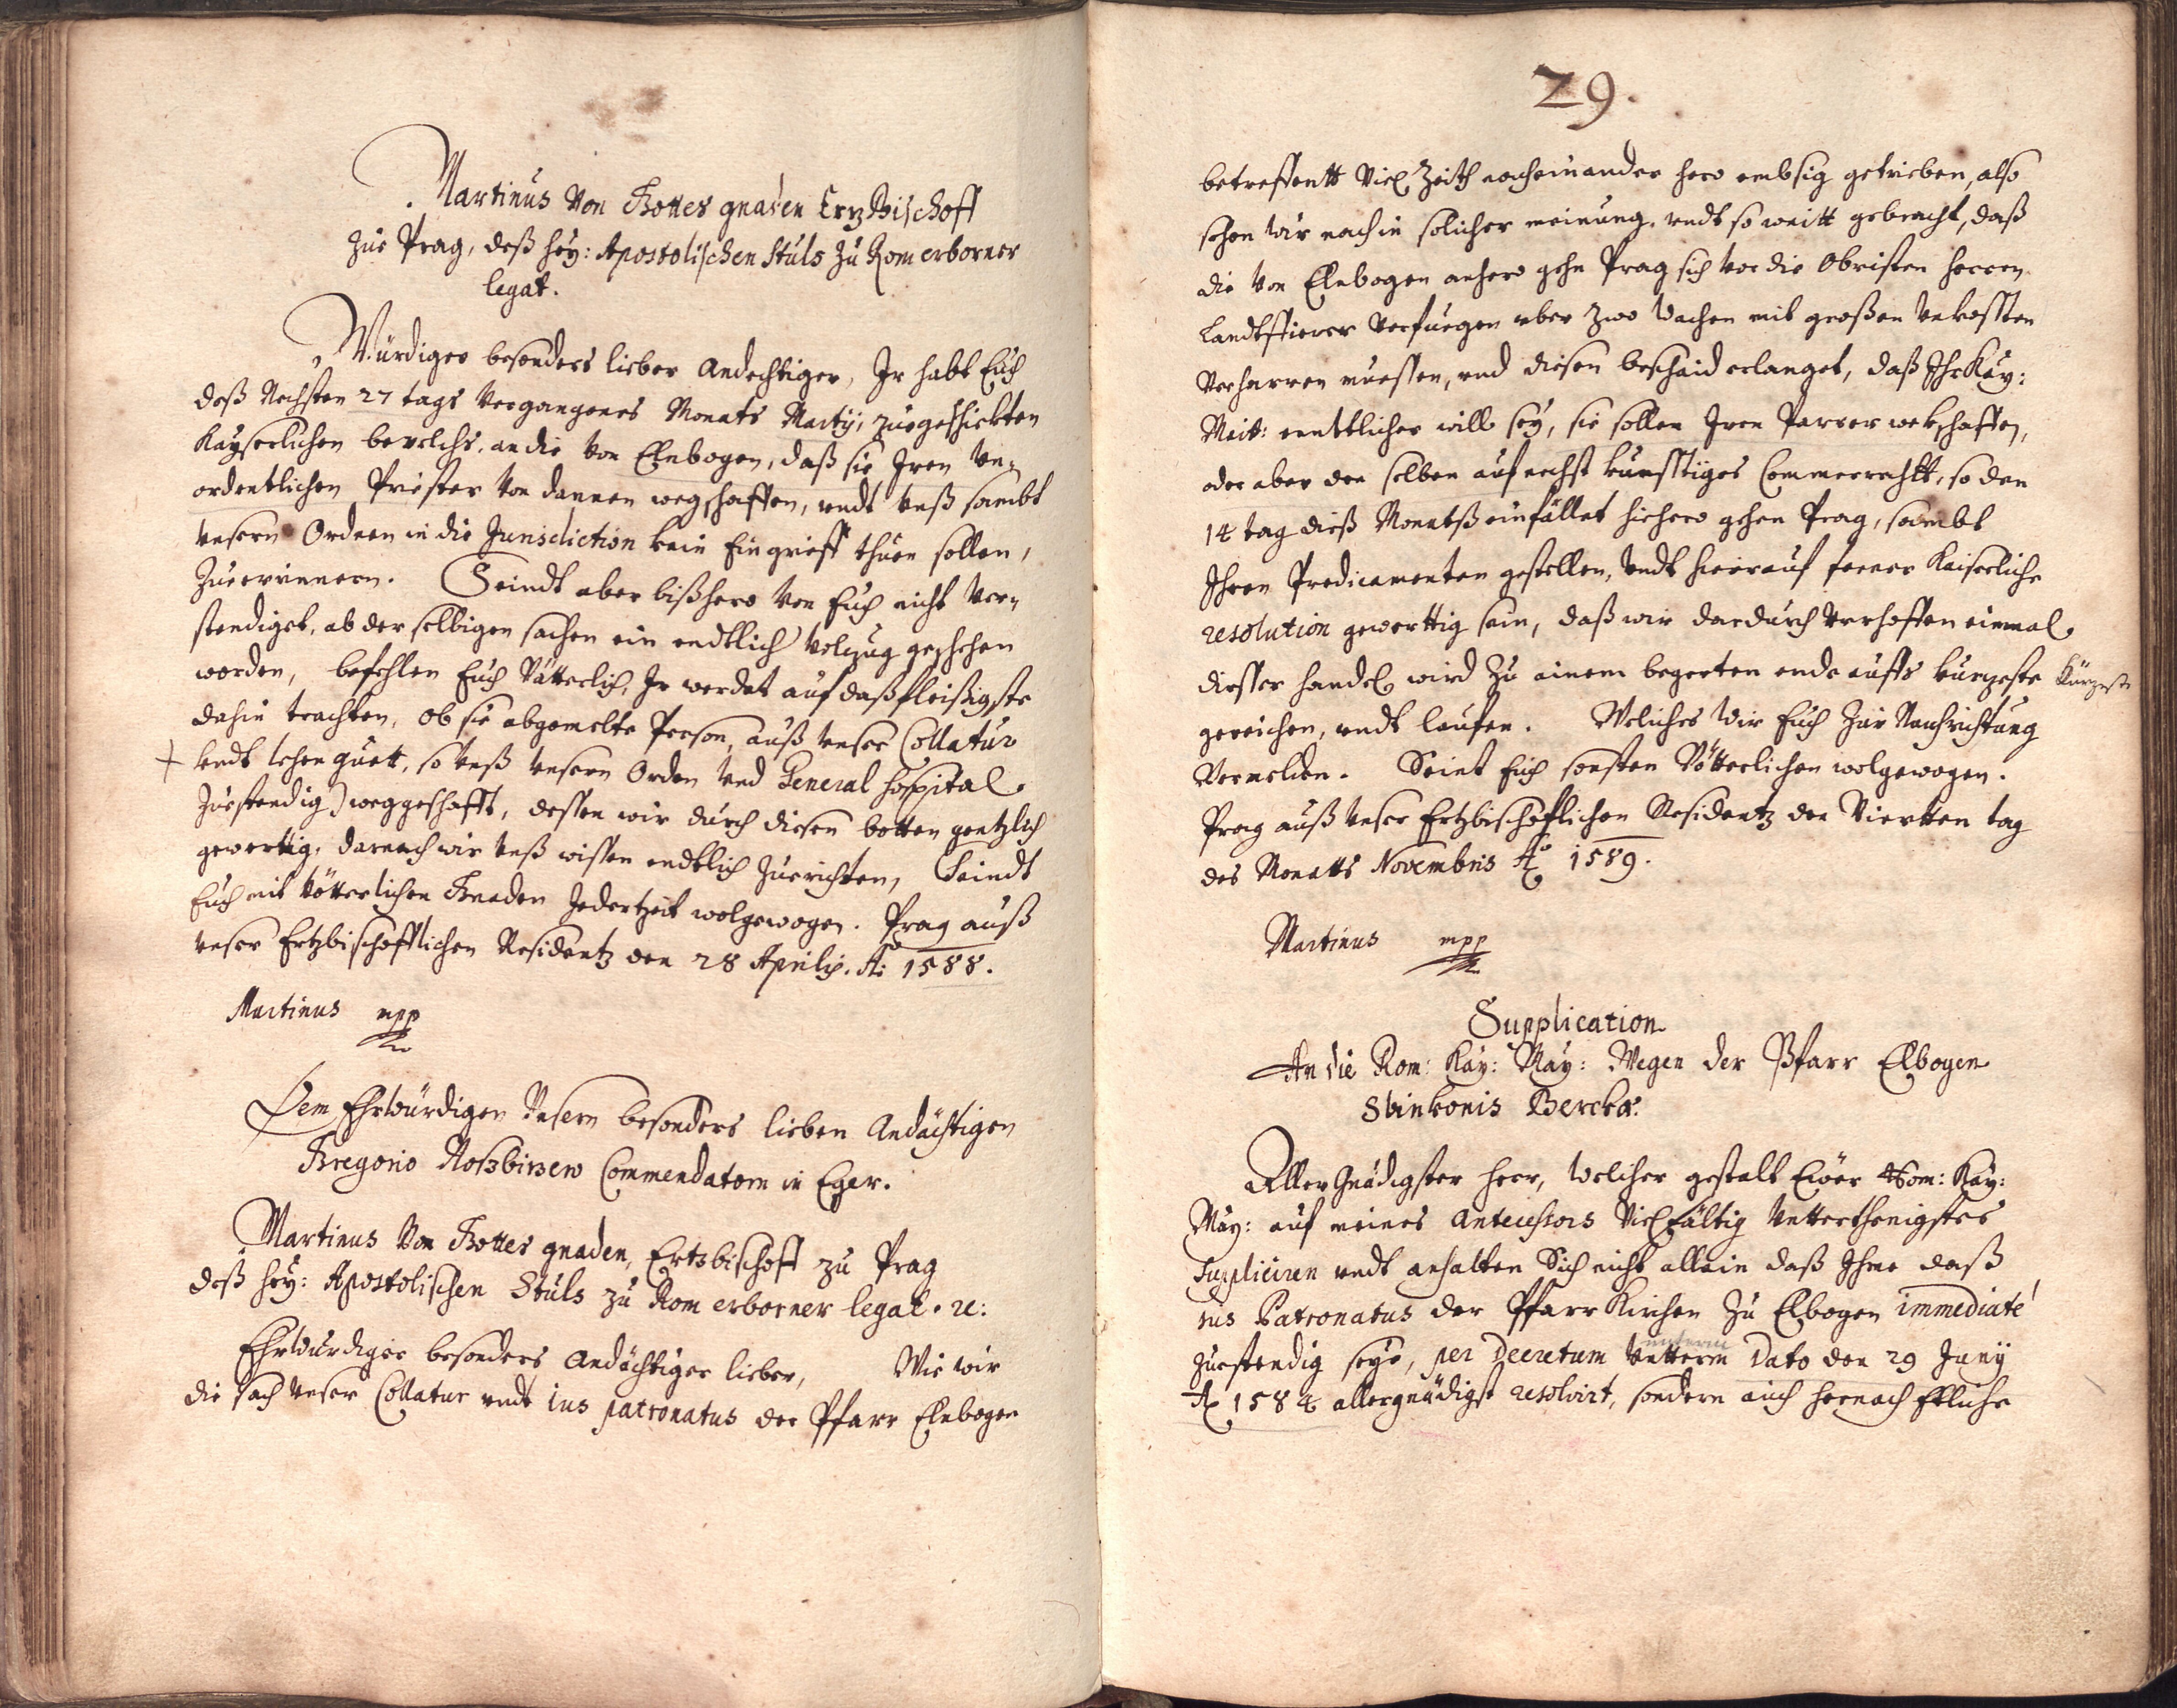 Martinus Von Gottes gnaden ErzBischoff
Zue Prag, deß hey: Apostolischen Stuls Zu Rom erborner
legat.
Würdiger besonders lieber Andechtiger, Ir habt Euch
deß Nechsten 27 tags Vergangenes Monats Martij, zuegeschickten
Kayserlichen bevelchs, an die von Elnbogen, daß sie Iren Un-
ordentlichen Priester von dannen wegschaffen, undt Unß sambt
Unsern Orden in die Jurisdiction kein Eingrieff thuen sollen,
Zuerinnern. Seindt aber bißhero von Euch nicht ver-
stendiget, ob derselbigen sachen ein endtlich Volzug geschehen
worden, befehlen Euch Vätterlich, Ir werdet auf daß fleißigste
dahin trachten, ob sie abgemelte Person, auß Unser Collatur
undt lehen guett, so Unß Unsern Orden Und General Hospital
Zuestendig) weggeschafft, dessen wir durch diesen botten gentzlich
gewerttig, darnach wir Unß wissen endtlich Zuerichten, Seindt
Euch mit Vötterlichen Gnaden Jedertzeit wolgewogen. Prag auß
Unser Ertzbischofflichen Residentz den 28 Aprilis. Ao 1588.
Martinus mpp
Dem EhrWürdigen Unsern besonders lieben Andächtigen
Gregorio Commendatorn in Eger.
Martinus Von Gottes gnaden, Ertzbischoff zu Prag
deß hey: Apostolischen Stuls zu Rom erborner legat. etc:
EhrWurdiger besonders Andächtiger lieber, Wie wir
die sach Unser Collatur undt ius patronatus der Pfarr Elnbogen
29.
betreffentt Viel Zeith nacheinander hero embsig getrieben, also
sehen wir noch in solicher meinung, undt so weitt gebracht, daß
die von Elnbogen anhero gehn Prag sich vor die Obristen Herren
Landtofficirer Verfuegen uber zwo Wochen mit großen Unkossten
Verharren muessen, und diesen bescheid erlanget, daß Ihr Kay:
Maitt: enttlicher will sey, sie sollen Iren Parrer wekschaffen,
oder aber den selben auf nechst kunfftiges Cammerrechtt, so den
14 tag dieß Monatß einfället hiehero gehen Prag, sambt
Ihren Predicamenten gestellen, Undt hierauf ferner Kaiserliche
resolution gewerttig sein, daß wir dardurch Verhoffen einmal
diesser handel wird Zu einem begerten ende auffs kurzeste Kürzeste
gereichen, undt laufen. Weliches Wir Euch Zur Nachrichtung
Vermelden. Seint Euch sonsten Vötterlichen wolgewogen.
Prag auß Unser Ertzbischoflichen Residentz den Viertten tag
des Monatts Novembris Ao 1589.
Martinus mpp
Supplication
An die Rom: Kay: May: Wegen der Pfarr Elbogen
Sbinkonis Bercka.
Aller Gnädigster Herr, Welcher gestalt Euer Rom: Kay:
May: auf meines Antecessors Vielfältig Untterthenigstes
Suppliciren undt anhalten Sich nicht allein daß Ihme daß
ius Patronatus der Pfarr Kirchen Zu Elbogen immediaté
Zuestendig seye, per Decretum Untterm unterm Dato den 29 Junij
Ao 1584 allergnädigst resolvirt, sondern auch hernach Ettliche